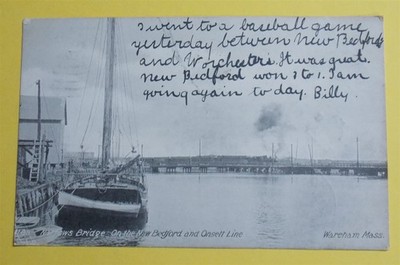 I went to a baseball game
yesterday between New Bedford
and Worchester. It was great.
New Bedford won 2 to 1. I am
going again to day. Billy.
Bridge. On the New Bedford and Onsett Line
Wareham Mass.